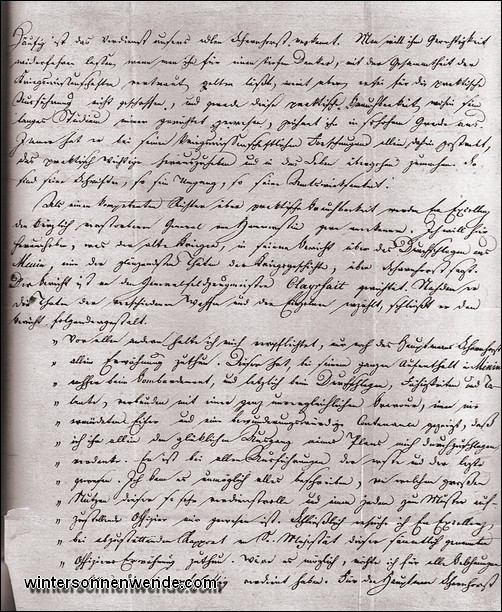 Häufig ist das Verdienst unsers edlen Scharnhorst verkannt. Man will ihm Gerechtigkeit
wiederfahren lassen, wenn man ihn für einen Denker, mit der Gesammtheit der
Kriegswissenschaften vertraut, gelten läßt, meint aber, er sei für die praktische
Ausführung nicht geschaffen, und gerade diese praktische Brauchbarkeit,
langes Studium einer gewesen, in hohem Grade aus.
Immer hat er bei seinen kriegswissenschaftlichen Forschungen allein dahin gestrebt,
das praktisch Wichtige herauszuheben und in das Leben übergehen zu machen. So
sind seine Schriften, so sein Umgang, so seine Amtswirksamkeit.
Als einen kompetenten Richter über praktische Brauchbarkeit werden Ew Excellenz
den kürzlich verstorbenen General v Hammerstein gern anerkennen. Ich will hier
, was der alte Krieger, in seinem Bericht über das Durchschlagen aus
Menin eine der glänzendsten Thaten der Kriegsgeschichte, über Scharnhorst sagt.
Der Bericht ist an den Generalfeldzeugmeister Clayrfait gerichtet. Nachdem er
die Thaten der verschiedenen Waffen und der Einzelnen erzählt, schließt er den
Bericht folgendergestalt.
„ Vor allen andern halte ich mich verpflichtet, nur noch des Hauptmann Scharnhorst
„ allein Erwähnung zu thun. Dieser hat, bei seinem ganzen Aufenthalt in Menin
„ nachher beim Bombardement, und letzlich beim Durchschlagen, Fähigkeiten und Ta-
„ lente, verbunden mit einer ganz unvergleichlichen Bravour, einen nie
„ ermüdeten Eifer und eine bewunderungswürdige Contenance gezeigt, daß
„ ich ihm allein den glücklichen Ausgang meines Plans mich durchzuschlagen
„ verdanke. Er ist bei allen Ausführungen der erste und der letzte
„ gewesen. Ich kann es unmöglich alles beschreiben, von welchem großen
„ Nutzen dieser so sehr verdienstvolle und einem jeden zum Muster auf-
„ zustellende Offizier mir gewesen ist. Schließlich ersuche ich Ew Excellenz,
„ bei abzustattendem Rapport an S. Majestät dieser sämtlich genannten
„ Offiziere Erwähnung zu thun. Wäre es möglich, möchte ich für alle Belohnungen
verdient haben. Für den Hauptmann Scharnhorst
wintersonnenwende.com